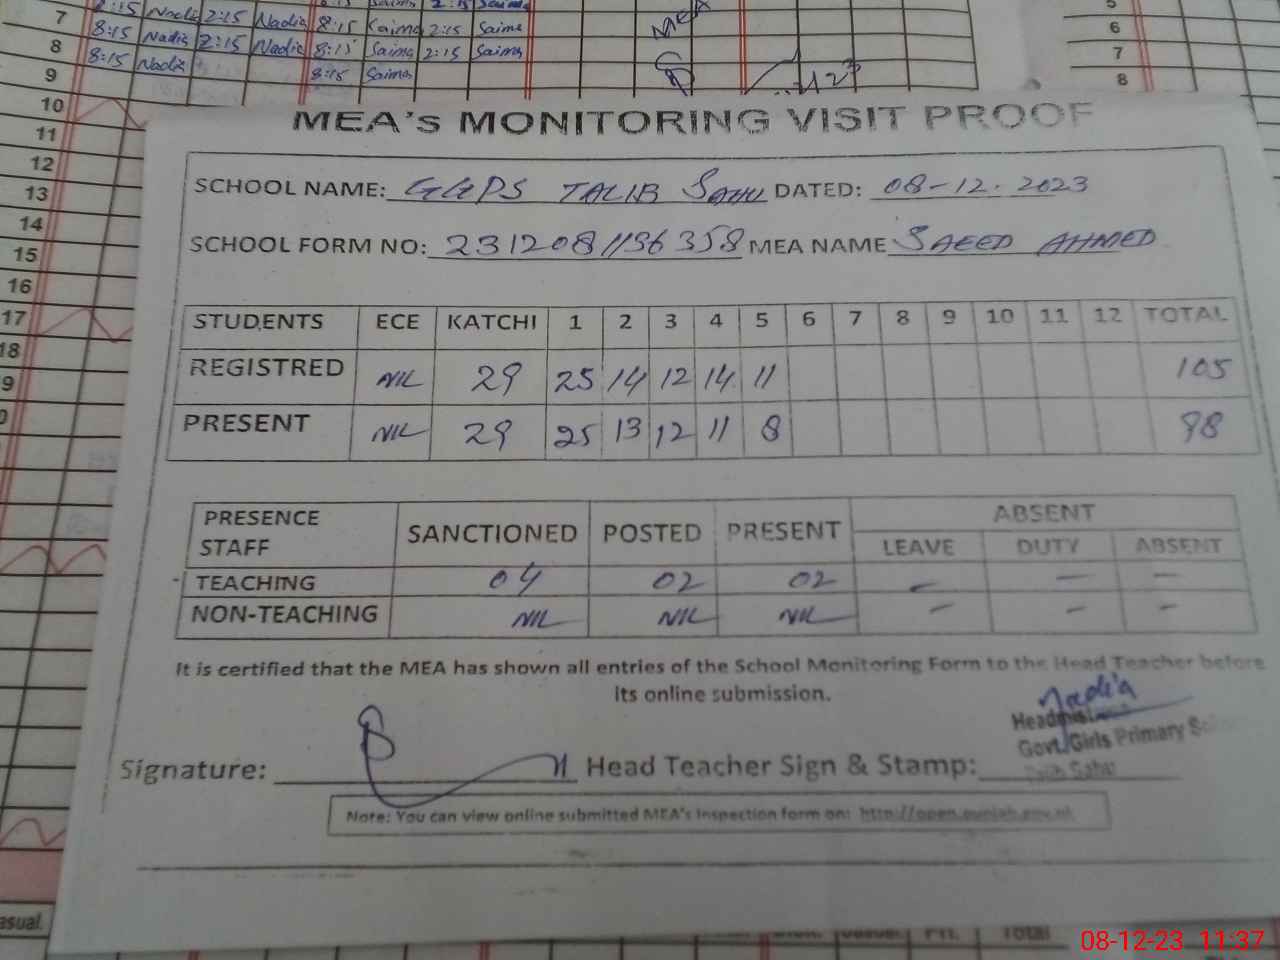 7 8:15 Nadia 2:15 Nadia 8:15 Saima 2:15 Saima
8 8:15 Nadia 2:15 Nadia 8:15 Saima 2:15 Saima
9 8:15 Nadia 8:15 Saima
10
11
12
13
14
15
16
17
18
5
6
7
8
MEA
MEA's MONITORING VISIT PROOF
SCHOOL NAME: GGPS TALIB SAHU DATED: 08-12-2023
SCHOOL FORM NO: 2312081136358 MEA NAME SAEED AHMED
STUDENTS ECE KATCHI 1 2 3 4 5 6 7 8 9 10 11 12 TOTAL
REGISTRED NIL 29 25 14 12 14 11 105
PRESENT NIL 29 25 13 12 11 8 98
PRESENCE STAFF SANCTIONED POSTED PRESENT ABSENT
LEAVE DUTY ABSENT
TEACHING 04 02 02 – – –
NON-TEACHING NIL NIL NIL – – –
It is certified that the MEA has shown all entries of the School Monitoring Form to the Head Teacher before
its online submission.
Nadia
Headmistress
Govt. Girls Primary School
Signature: Head Teacher Sign & Stamp:
Note: You can view online submitted MEA's Inspection form on: http://open.punjab.gov.pk
asual.
Total
08-12-23 11:37